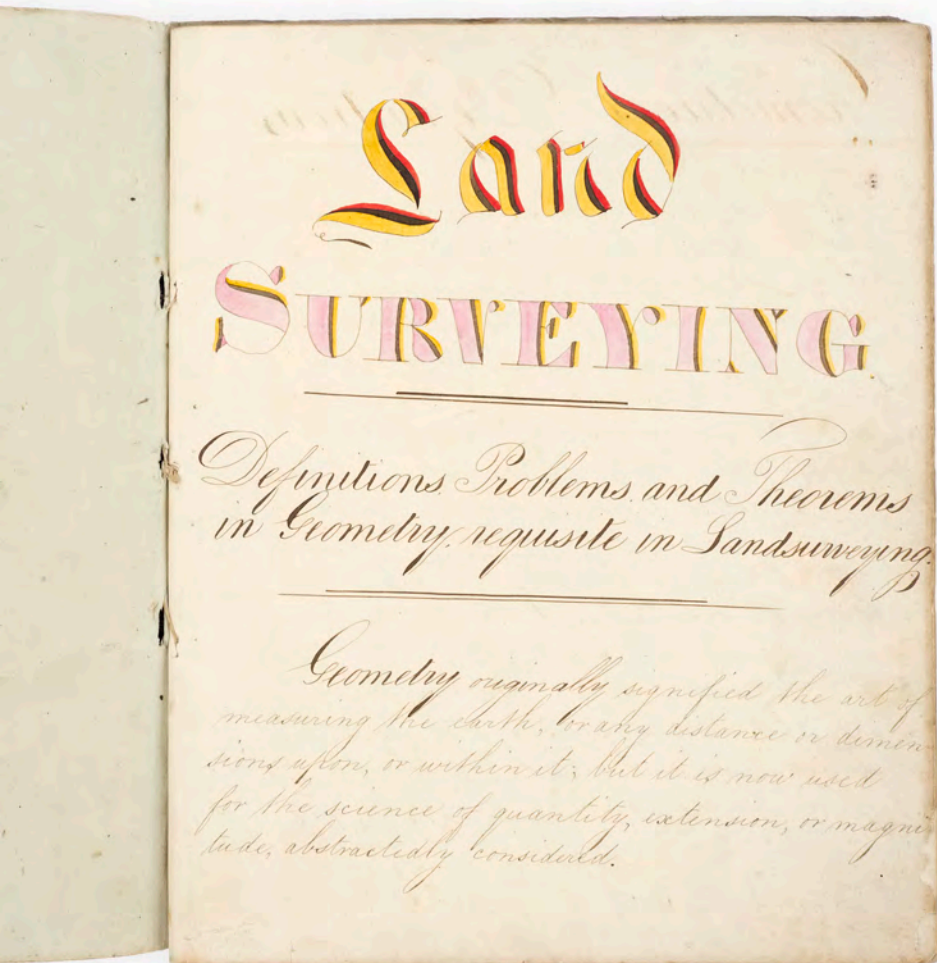 Land
SURVEYING.
Definitions. Problems. and Theorems
in Geometry. requisite in Landsurveying.
Geometry originally signified the art of
measuring the earth, or any distance or dimen-
sions upon, or within it; but it is now used
for the science of quantity, extension, or magni-
tude, abstractedly considered.